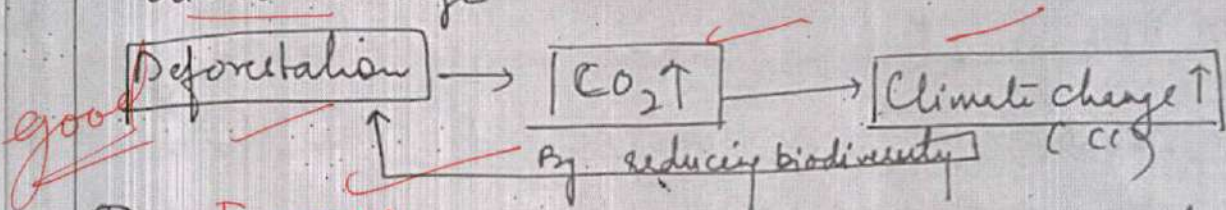 Deforestation → CO₂↑ → Climate change ↑
good
By reducing biodiversity (CC)